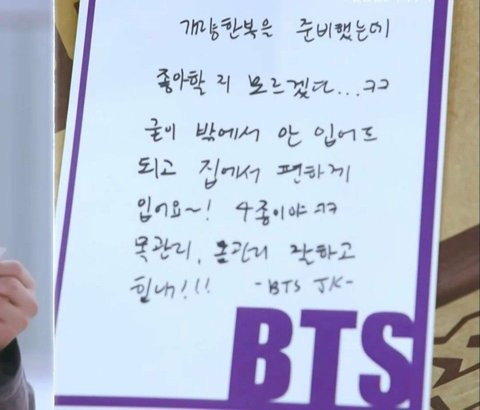 개량한복을 준비했는데
좋아할 지 모르겠다...ㅋㅋ
굳이 밖에서 안 입어도
되고 집에서 편하게
입어요~! 4종이야ㅋㅋ
목관리, 몸관리 잘하고
힘내!!! -BTS JK-
BTS